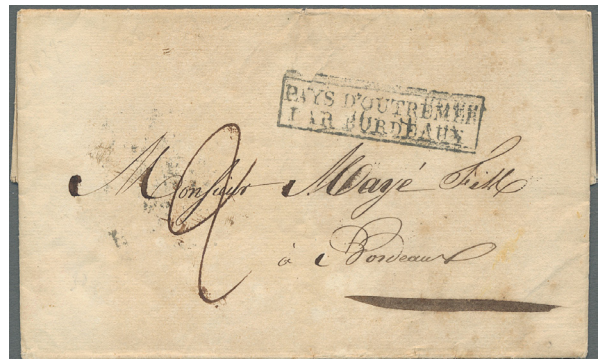 PAYS D'OUTREMER
PAR BORDEAUX
2
Monsieur Mayé Fils
à Bordeaux